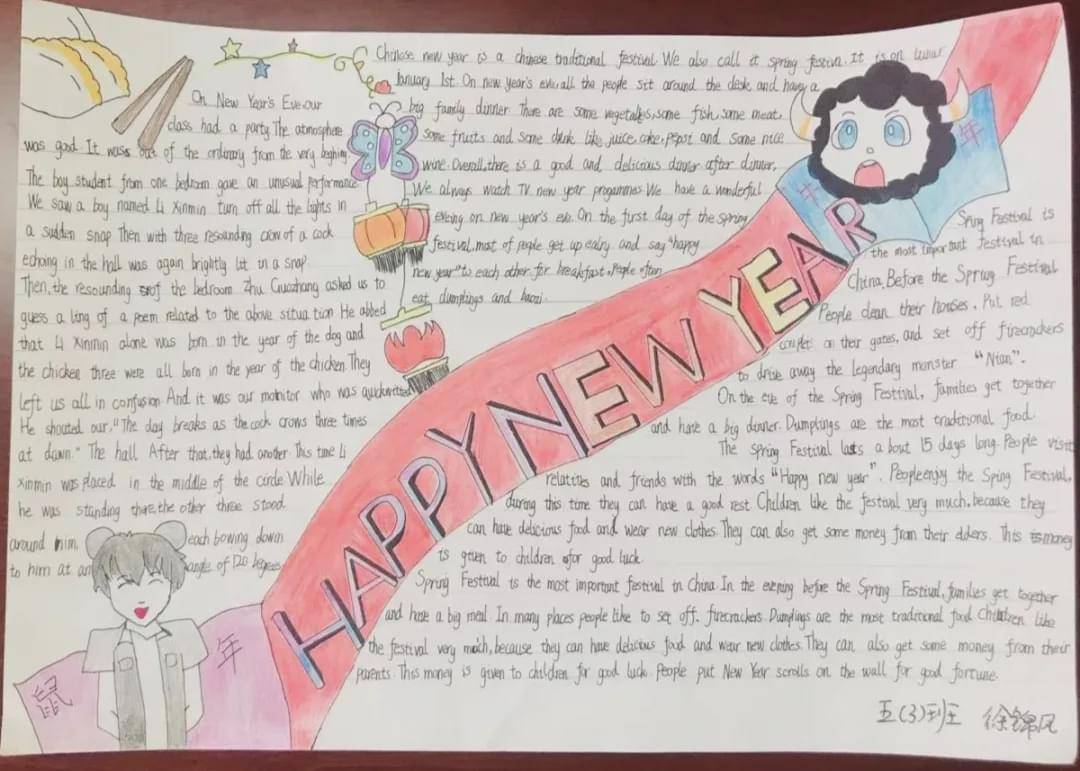 Chinese new year is a chinese traditional festival. We also call it spring festivn. It is on lunar
January 1st. On new year's eve.all the people sit around the desk and have a
big family dinner. There are some vegetables,some fish,some meat,
some fruits and some drink like juice, coke, pepsi and some nice
wine. Overall,there is a good and delicious dinner after dinner,
We always watch TV new year progammes We have a wonderful
eveing on new year's eve. On the first day of the spring
festival,most of people get up ealry and say "happy
new year" to each other. for breakfast, People often
eat dumplings and baozi.
On New Year's Eve.our
class had a party. The atmosphere
was good. It was out of the ordinary from the very beghing.
The boy student from one bedroom gave an unusual performance
We saw a boy named Li Xinmin turn off all the lights in
a sudden snap Then with three resounding crow of a cock
echong in the hall was again brightly lit in a snap.
Then, the resounding of the bedroom Zhu Guozhang asked us to
guess a ling of a poem related to the above situation He abbed
that Li Xinmin alone was born in the year of the dog and
the chicken three were all born in the year of the chicken. They
left us all in confusion And it was our monitor who was quickwitted
He shouted our. "The day breaks as the cock crows three times
at dawn." The hall. After that, they had another. This time Li
Xinmin was placed in the middle of the circle While
he was standing there, the other three stood
around him. each bowing down
to him at an angle of 120 degrees
HAPPY NEW YEAR
羊年
Spring Festival is
the most important festival in
China. Before the Spring Festival
People clean their houses, Put red
couplets on their gates, and set off firecrackers
to drive away the legendary monster "Nian".
On the eve of the Spring Festival, families get together
and have a big dinner. Dumplings are the most traditional food.
The spring Festival lasts about 15 days long. People visit
relatives and friends with the words "Happy new year". People enjoy the Sping Festival,
during this time they can have a good rest Children like the festival very much, because they
can have delicious food and wear new clothes. They can also get some money from their elders. This money
is given to children for good luck.
Spring Festival is the most important festival in China. In the evening before the Spring Festival, families get together
and have a big meal. In many places people like to set off. firecrackers. Dumplings are the most traditional food. Children like
the festival very much, because they can have delicious food and wear new clothes. They can also get some money from their
parents. This money is given to children for good luck. People put New Year scrolls on the wall for good fortune.
鼠年
五(3)班 徐锦风